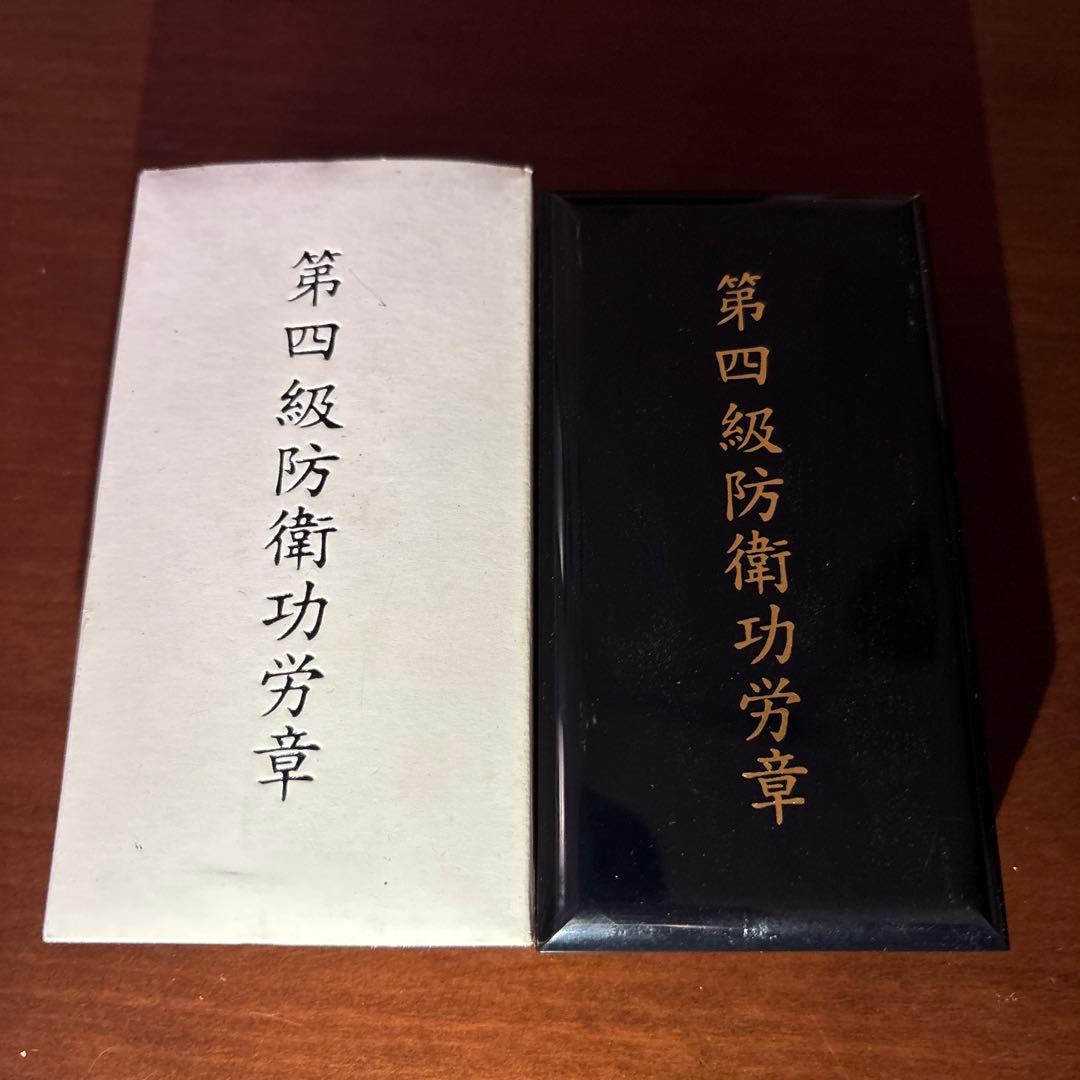 第四級防衛功労章
第四級防衛功労章